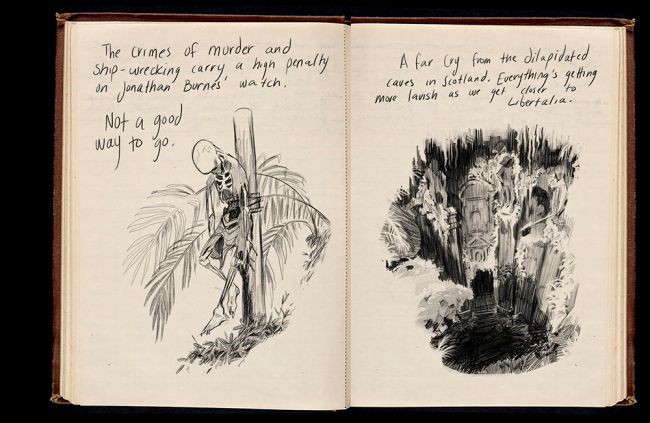 The crimes of murder and
ship-wrecking carry a high penalty
on Jonathan Burnes' watch.
Not a good
way to go.
A far cry from the dilapidated
caves in Scotland. Everything's getting
more lavish as we get closer to
Libertalia.